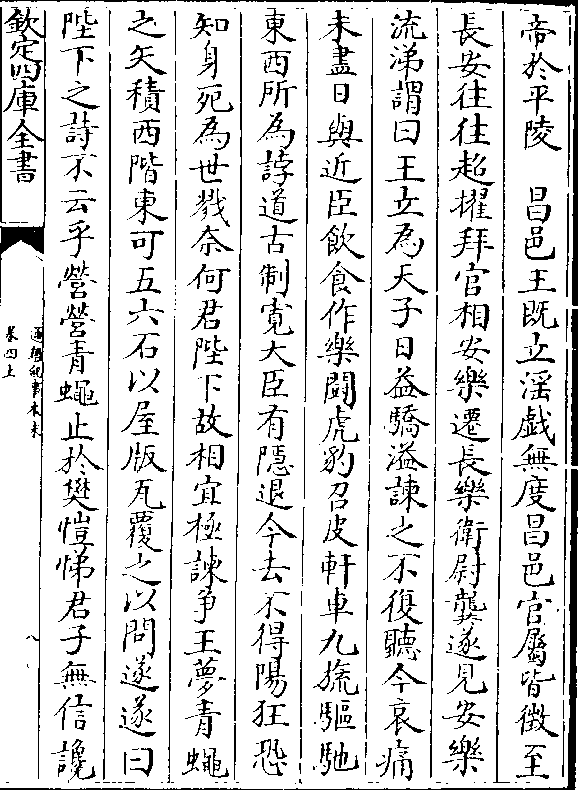 帝於平陵　昌邑王既立淫戲無度昌邑官屬皆徵至
長安往往超擢拜官相安樂遷長樂衛尉龔遂見安樂
流涕謂曰王立為天子日益驕溢諫之不復聽今哀痛
未盡日與近臣飲食作樂鬬虎豹召皮軒車九旒驅馳
東西所為誖道古制寛大臣有隠退今去不得陽狂恐
知身死為世戮奈何君陛下故相宜極諫爭王夢青蠅
之矢積西階東可五六石以屋版瓦覆之以問遂遂曰
陛下之詩不云乎營營青蠅止於樊愷悌君子無信讒
欽定四庫全書
通鑑紀事本末
卷四上
八